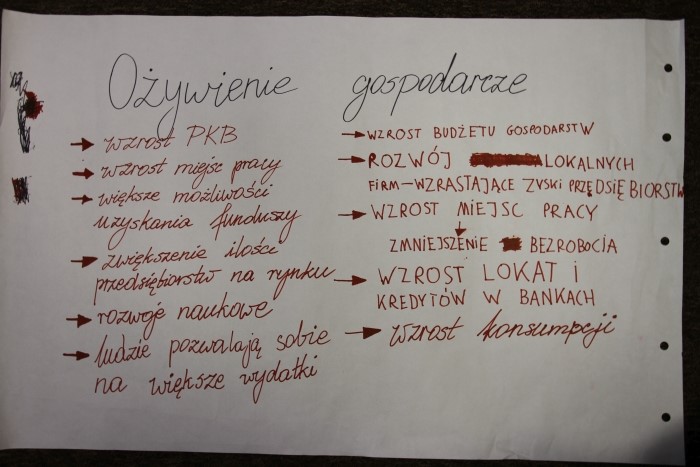 Ożywienie gospodarcze
→ wzrost PKB
→ wzrost miejsc pracy
→ większe możliwości
uzyskania funduszy
→ zwiększenie ilości
przedsiębiorstw na rynku
→ rozwoje naukowe
→ ludzie pozwalają sobie
na większe wydatki
→ WZROST BUDŻETU GOSPODARSTW
→ ROZWÓJ LOKALNYCH
FIRM – WZRASTAJĄCE ZYSKI PRZEDSIĘBIORSTW
→ WZROST MIEJSC PRACY
↓
ZMNIEJSZENIE BEZROBOCIA
→ WZROST LOKAT i
KREDYTÓW W BANKACH
→ wzrost konsumpcji